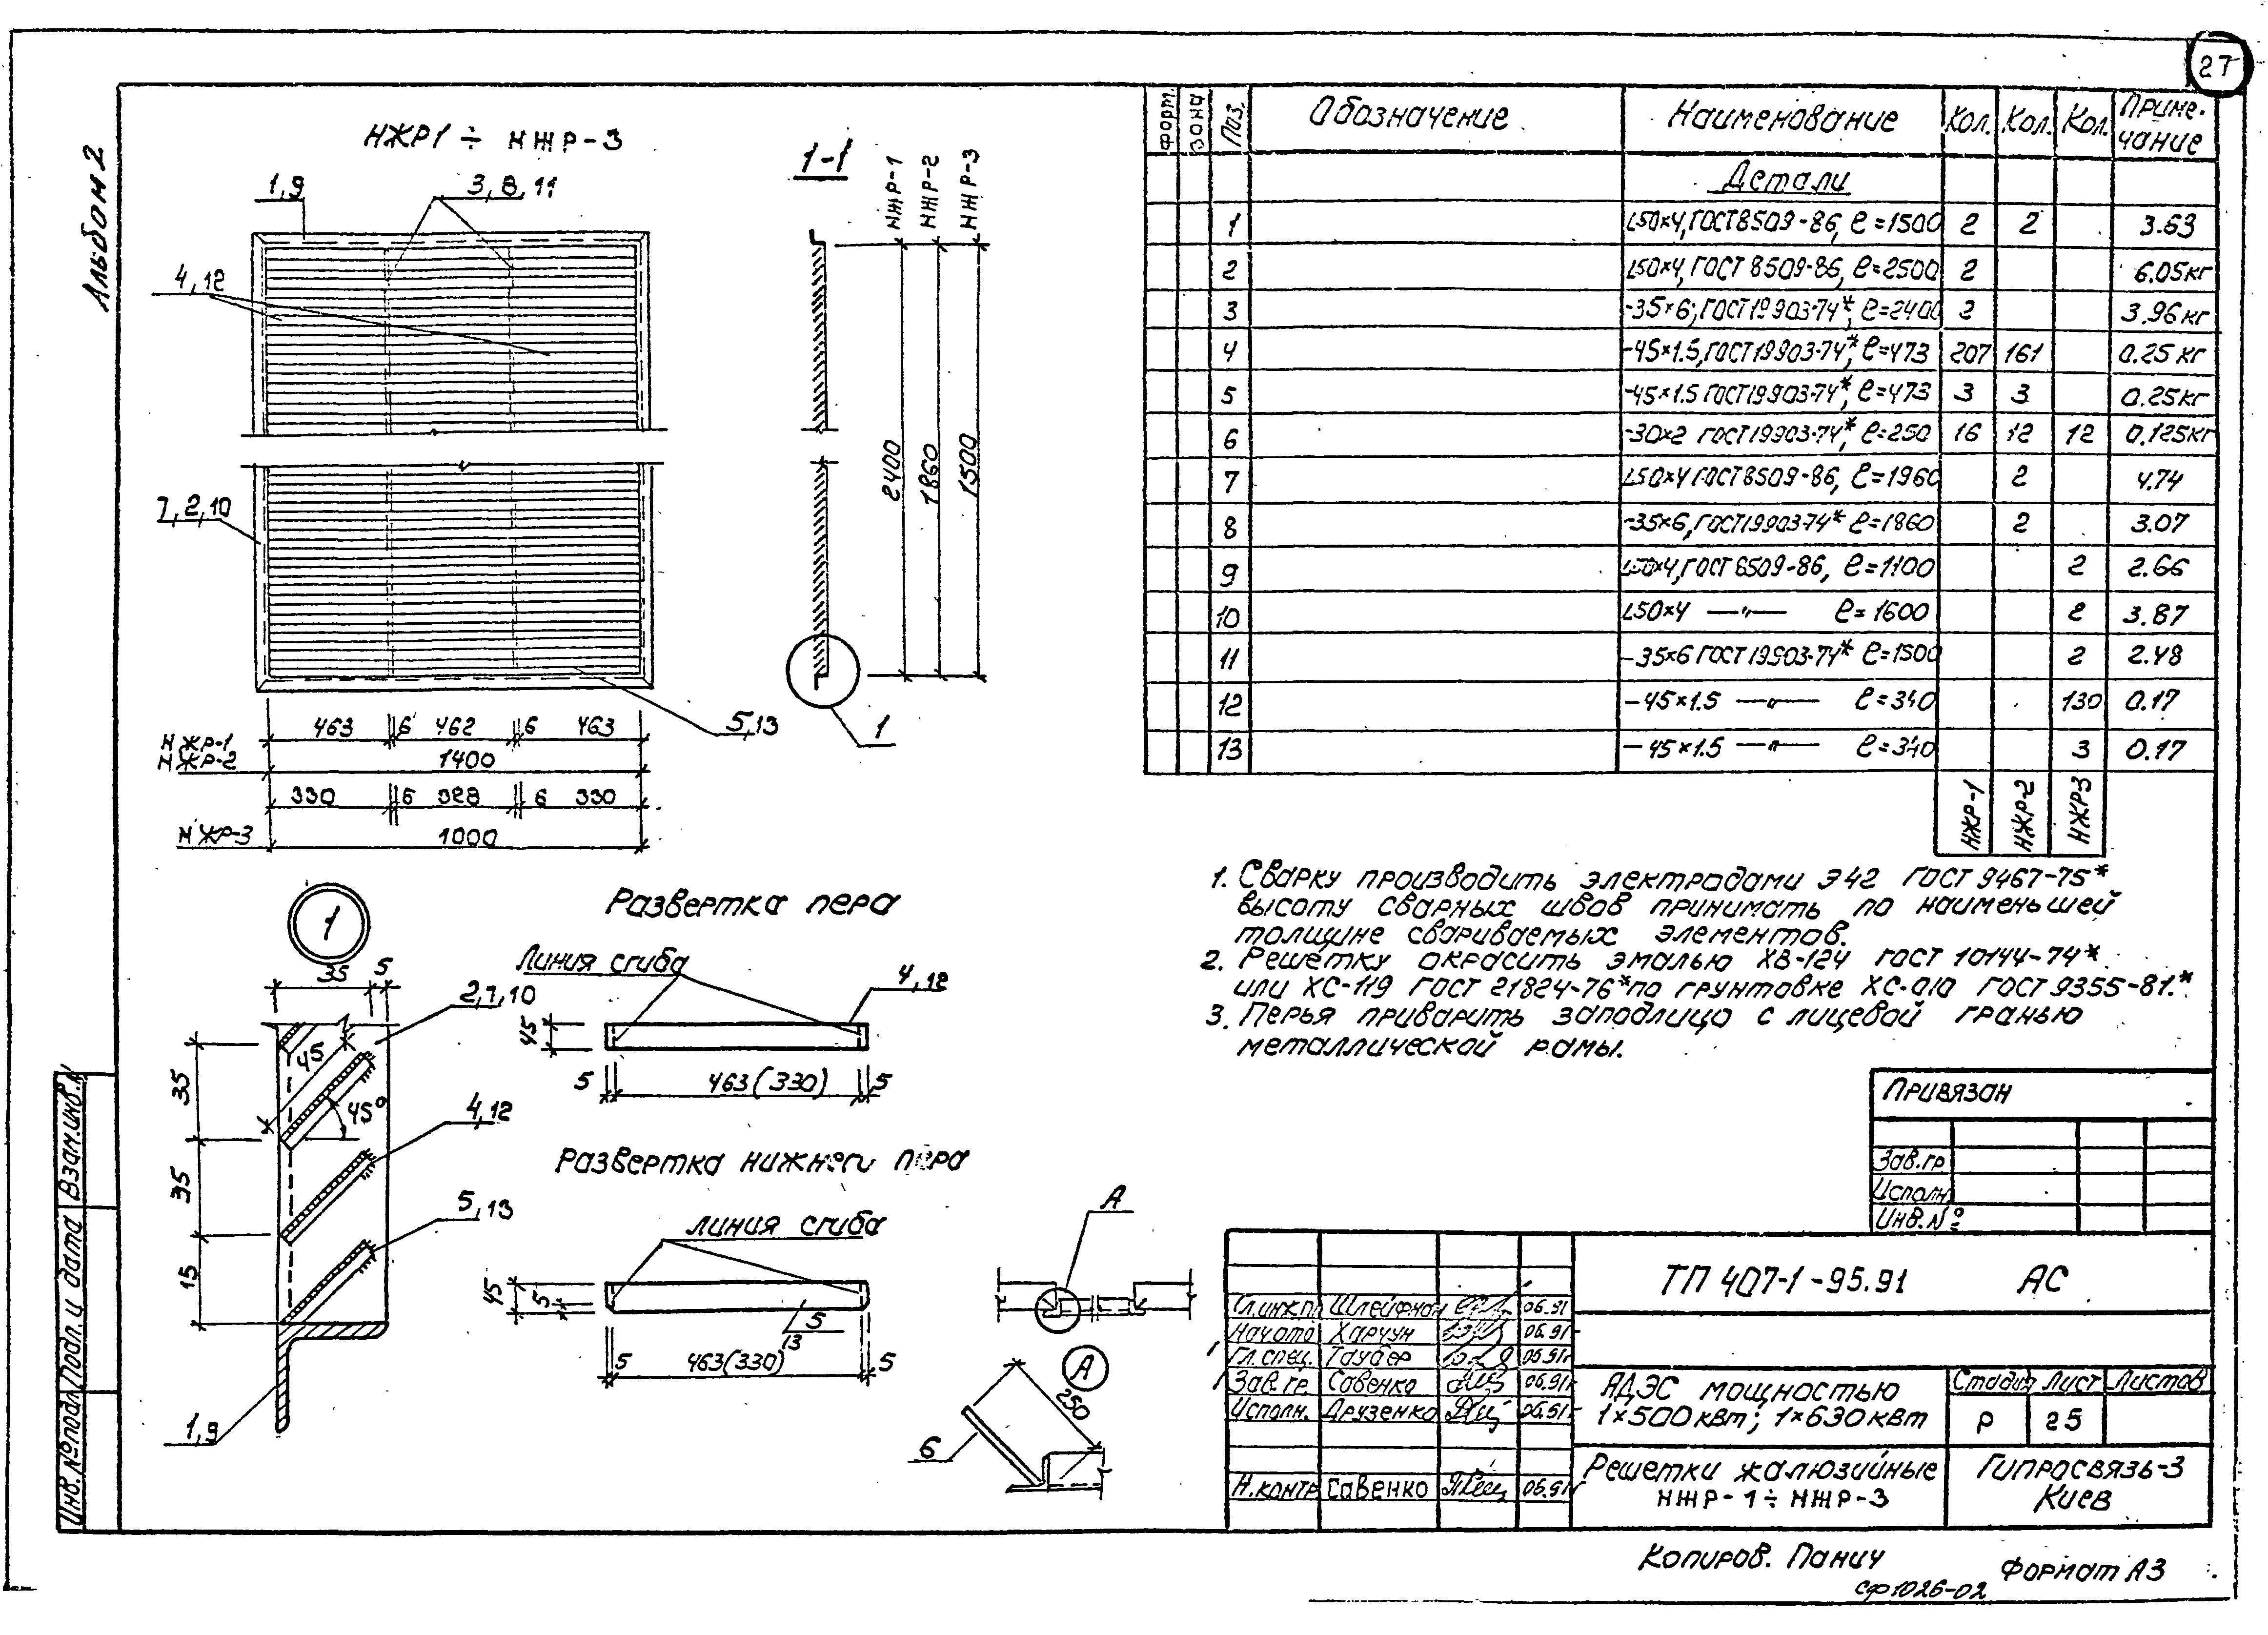 27
Альбом 2
НЖР1 ÷ НЖР-3
1,9
3,8,11
4,12
7,2,10
5,13
463 6 462 6 463
НЖР-1
НЖР-2
1400
330 6 328 6 330
НЖР-3
1000
1-1
НЖР-1
НЖР-2
НЖР-3
2400
1860
1500
1
Форм.
Зона
Поз.
Обозначение
Наименование
Кол.
Кол.
Кол.
Приме-
чание
Детали
1 L50×4, ГОСТ 8509-86, ℓ=1500 2 2 3.63
2 L50×4, ГОСТ 8509-86, ℓ=2500 2 6.05кг
3 -35×6, ГОСТ 19903-74*, ℓ=2400 2 3.96кг
4 -45×1.5, ГОСТ 19903-74*, ℓ=473 207 161 0.25кг
5 -45×1.5 ГОСТ 19903-74*, ℓ=473 3 3 0.25кг
6 -30×2 ГОСТ 19903-74*, ℓ=250 16 12 12 0.125кг
7 L50×4 ГОСТ 8509-86, ℓ=1960 2 4.74
8 -35×6, ГОСТ 19903-74* ℓ=1860 2 3.07
9 L50×4, ГОСТ 8509-86, ℓ=1100 2 2.66
10 L50×4 —"— ℓ=1600 2 3.87
11 -35×6 ГОСТ 19903-74* ℓ=1500 2 2.48
12 -45×1.5 —"— ℓ=340 130 0.17
13 -45×1.5 —"— ℓ=340 3 0.17
НЖР-1
НЖР-2
НЖР3
1. Сварку производить электродами Э42 ГОСТ 9467-75*
высоту сварных швов принимать по наименьшей
толщине свариваемых элементов.
2. Решетку окрасить эмалью ХВ-124 ГОСТ 10144-74*
или ХС-119 ГОСТ 21824-76* по грунтовке ХС-010 ГОСТ 9355-81.*
3. Перья приварить заподлицо с лицевой гранью
металлической рамы.
1
35 5
2,7,10
45
45°
35
4,12
35
5,13
15
1,9
Развертка пера
Линия сгиба
4,12
45
5 463(330) 5
Развертка нижнего пера
линия сгиба
45
5
5
13
5 463(330) 5
А
А
250
6
Привязан
Зав.гр
Исполн.
Инв.№
ТП 407-1-95.91 АС
Гл.инж.пр Шлейфман 06.91
Нач.отд Харчун 06.91
Гл.спец. Таубер 06.91г
Зав.гр. Савенко 06.91г
Исполн. Друзенко 06.91г
Н.контр Савенко 06.91г
АДЭС мощностью
1×500квт; 1×630квт
Стадия Лист Листов
Р 25
Решетки жалюзийные
НЖР-1÷НЖР-3
Гипросвязь-3
Киев
Копиров. Панич
Формат А3
сф1026-02
Взам.инв.№
Подп. и дата
Инв.№подл.